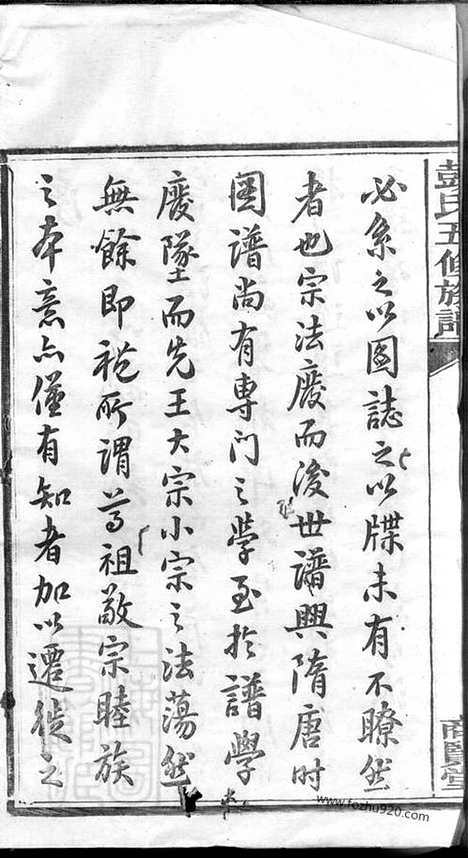 彭氏五修族譜
商賢堂
必系之以圖誌之以牒未有不瞭然
者也宗法廢而後世譜興隋唐時
圖譜尚有專门之學至於譜學
廢墜而先王大宗小宗之法蕩然
無餘即禮所謂尊祖敬宗睦族
之本意亦僅有知者加以遷徙之
www.fozhu920.com